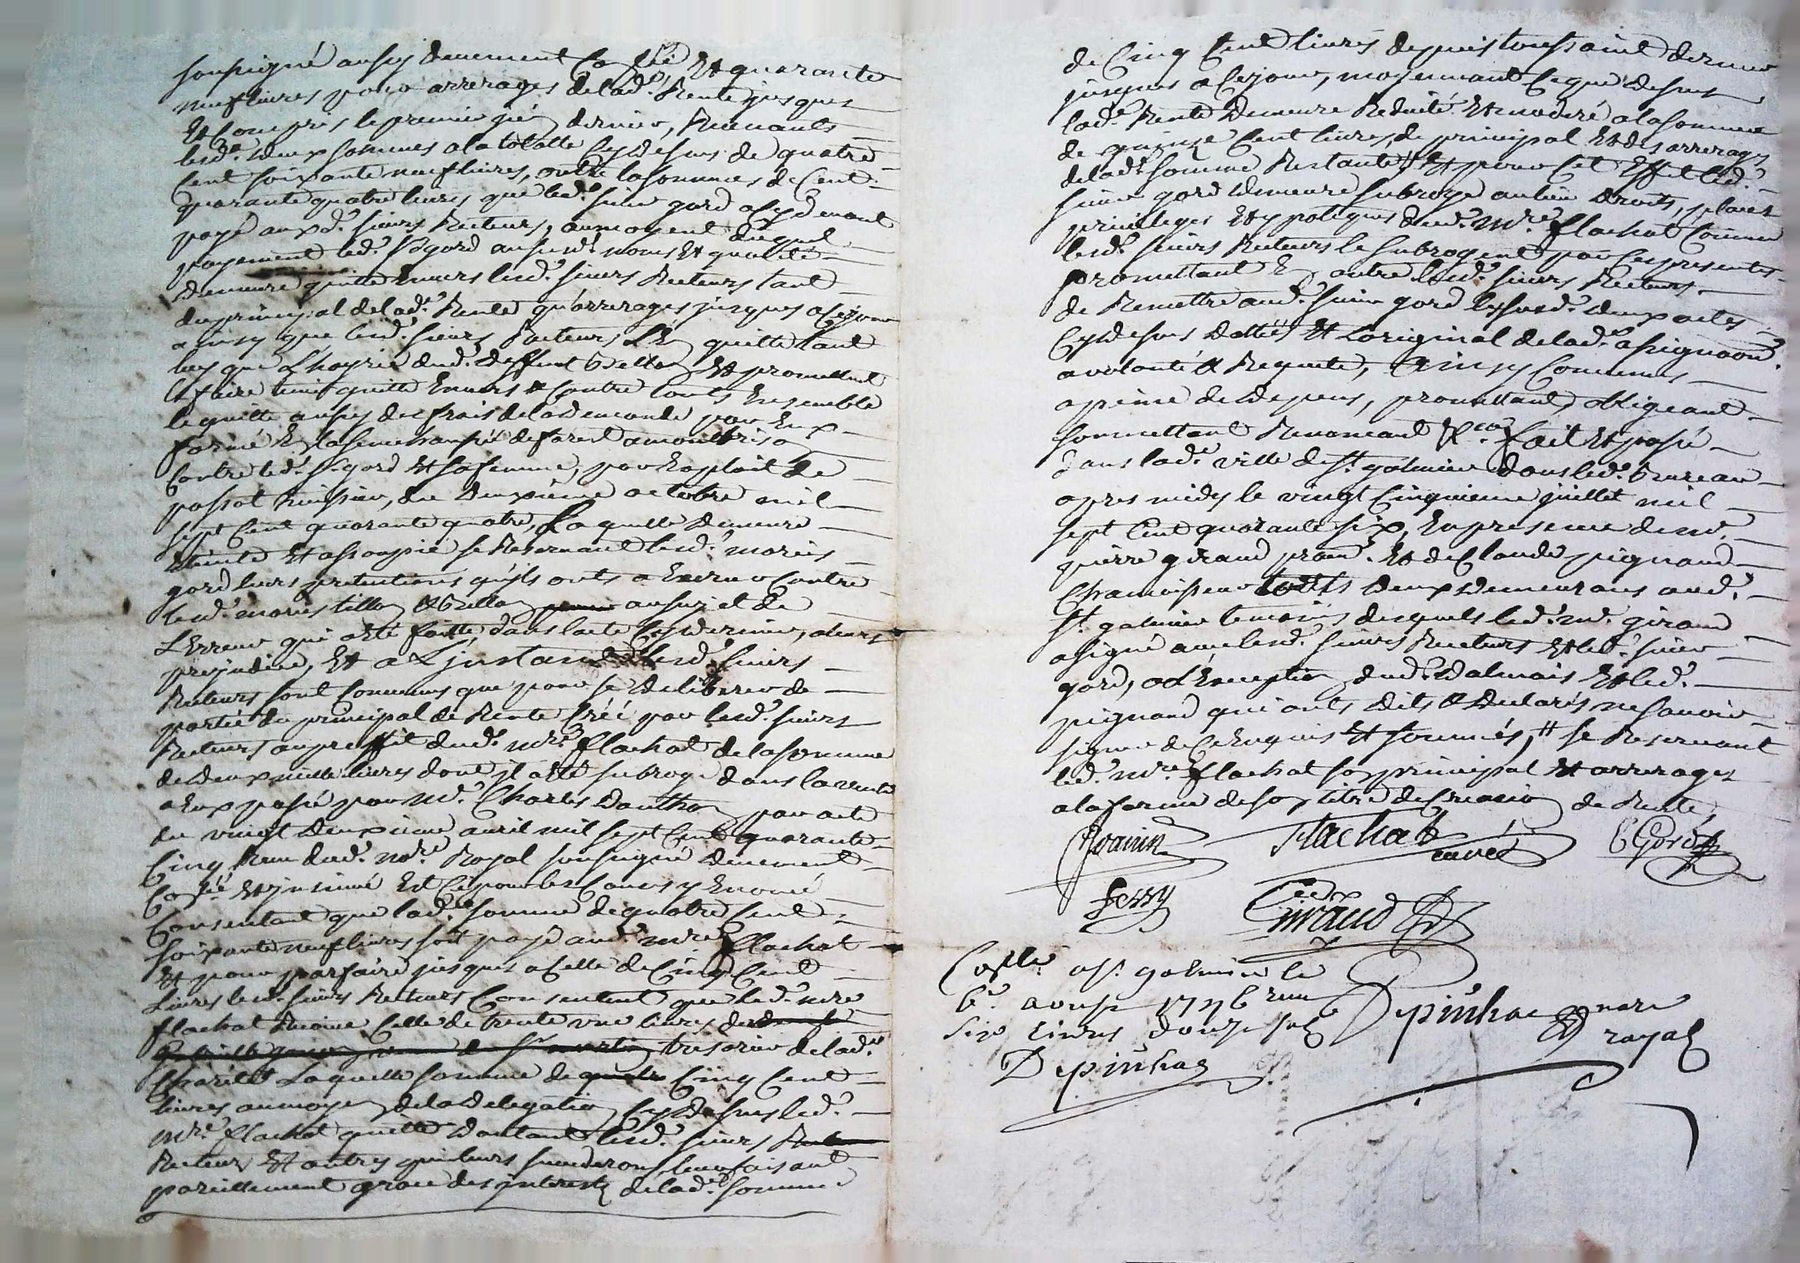 soussigné aussy deuement Collé, Et quarante
neuf livres pour arrerages de lad.e Rente jusques
Et Compris le premier jer dernier, Revenants
lesd.es deux sommes a la totalle Cy dessus de quatre
Cent soixante neuf livres, outre la somme de Cent
quarante quatre livres que led.t sieur gord a cy devant
payé auxd.s sieurs Recteurs, au moyent duquel
payement led.t s.r gord auxd.s noms Et qualité
demeure quitte Envers lesd.s sieurs Recteurs tant
du principal de lad.e Rente qu'arrerages jusques a Cejour
ainsy que lesd.s sieurs Recteurs L'En quittent tant
luy que L'hoyrie dud.t deffunt Et promettent
le faire tenir quitte Envers Et Contre touts Ensemble
le quitte aussy des frais de la demande par Eux
formé En la senechaussée de forest a montbrison
Contre led.t s.r gord Et sa femme, par Exploit de
possot huissier, du deuxième octobre mil
sept Cent quarante quatre, La quelle demeure
Eteinte Et assoupie se Reservant lesd.s mariés
gord leurs pretentions qu'ils onts a Exercer Contre
lesd.s mariés au sujet de
L'Erreur qui a Eté faitte dans l'acte Cy dernier, a leurs
prejudice, Et a L'instant lesd.s sieurs
Recteurs sont Convenus que pour se deliberer de
partie du principal de Rente Créé par lesd.s sieurs
Recteurs au proffit dud.t m.re flachat de la somme
de deux mille livres dont il a Eté subrogé dans la vente
a Eux passé par m.e Charles Dauthon par acte
du vingt deuxième avril mil sept Cent quarante
Cinq Receu dud.t m.e Royal soussigné deuement
Collé Et insinué Est Cy pour les Causes y Enoncé
Consentant que lad.e somme de quatre Cent
soixante neuf livres soit payé aud.t m.re flachat
Et pour parfaire jusques a Celle de Cinq Cent
livres lesd.s sieurs Recteurs Consentent que led.t m.re
flachat Retire Celle de trente une livres du
tresorier de lad.e
Charité Laquelle somme de Cinq Cent
livres au moyen de la delegation Cy dessus led.t
m.re flachat quitte d'autant lesd.s sieurs
Recteurs Et autres qu'leurs succederont leur faisant
pareillement grace des interests de lad.e somme
de Cinq Cent livres depuis toussaint dernier
jusques a Cejour, moyennant Ce que dessus
lad.e Rente demeure Reduite Et moderé a la somme
de quinze Cent livres de principal Et des arrerages
de lad.e somme Restante, # Et pour Cet Effet led.t
sieur gord demeure subrogé au lieu droits, places
privileges Et ypoteques dud.t m.re flachat Comme
lesd.s sieurs Recteurs le subrogent par Ces presentes
promettant En outre lesd.s sieurs Recteurs
de Remettre aud.t sieur gord lesd.s deux actes
Cy dessus dattés Et L'original de lad.e assignaon
a volonté Et Requete, Ainsy Convenus
a peine de depens, promettant, obligeant
soumettant Renonceant Et.ca fait Et passé
dans lad.e ville de s.t galmier dans led.t bureau
apres midy le vingt Cinquieme juillet mil
sept Cent quarante six, En presence de m.e
pierre giraud Et de Claude pignard
touts deux demeurans aud.t
s.t galmier temoins desquels led.t m.e giraud
a signé avec lesd.s sieurs Recteurs Et led.t sieur
gord, a L'Exception dud.t dalmais Et led.t
pignard qui onts dits Et declarés ne savoir
signer de Ce Enquis Et sommés, # se Reservant
led.t m.re flachat son principal Et arrerages
a la forme de son titre de Creation de Rente,
Flachat
curé
C Gord
fessy
Giraud
Collé a s.t galmier le
6.e aoust 1746 receu
six livres douze sols
Depinhac
Depinhac nore
royal